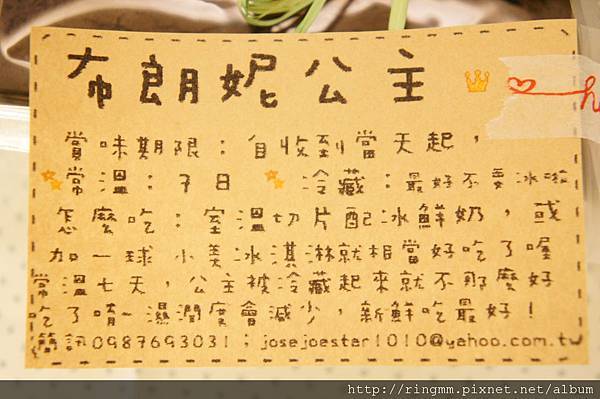 布朗妮公主
賞味期限：自收到當天起，
常溫：7日 冷藏：最好不要冰啦
怎麼吃：室溫切片配冰鮮奶，或
加一球小美冰淇淋就相當好吃了喔
常溫七天，公主被冷藏起來就不那麼好
吃了唷~濕潤度會減少，新鮮吃最好！
簡訊0987693031；josejoestar1010@yahoo.com.tw
http://ringmm.pixnet.net/album